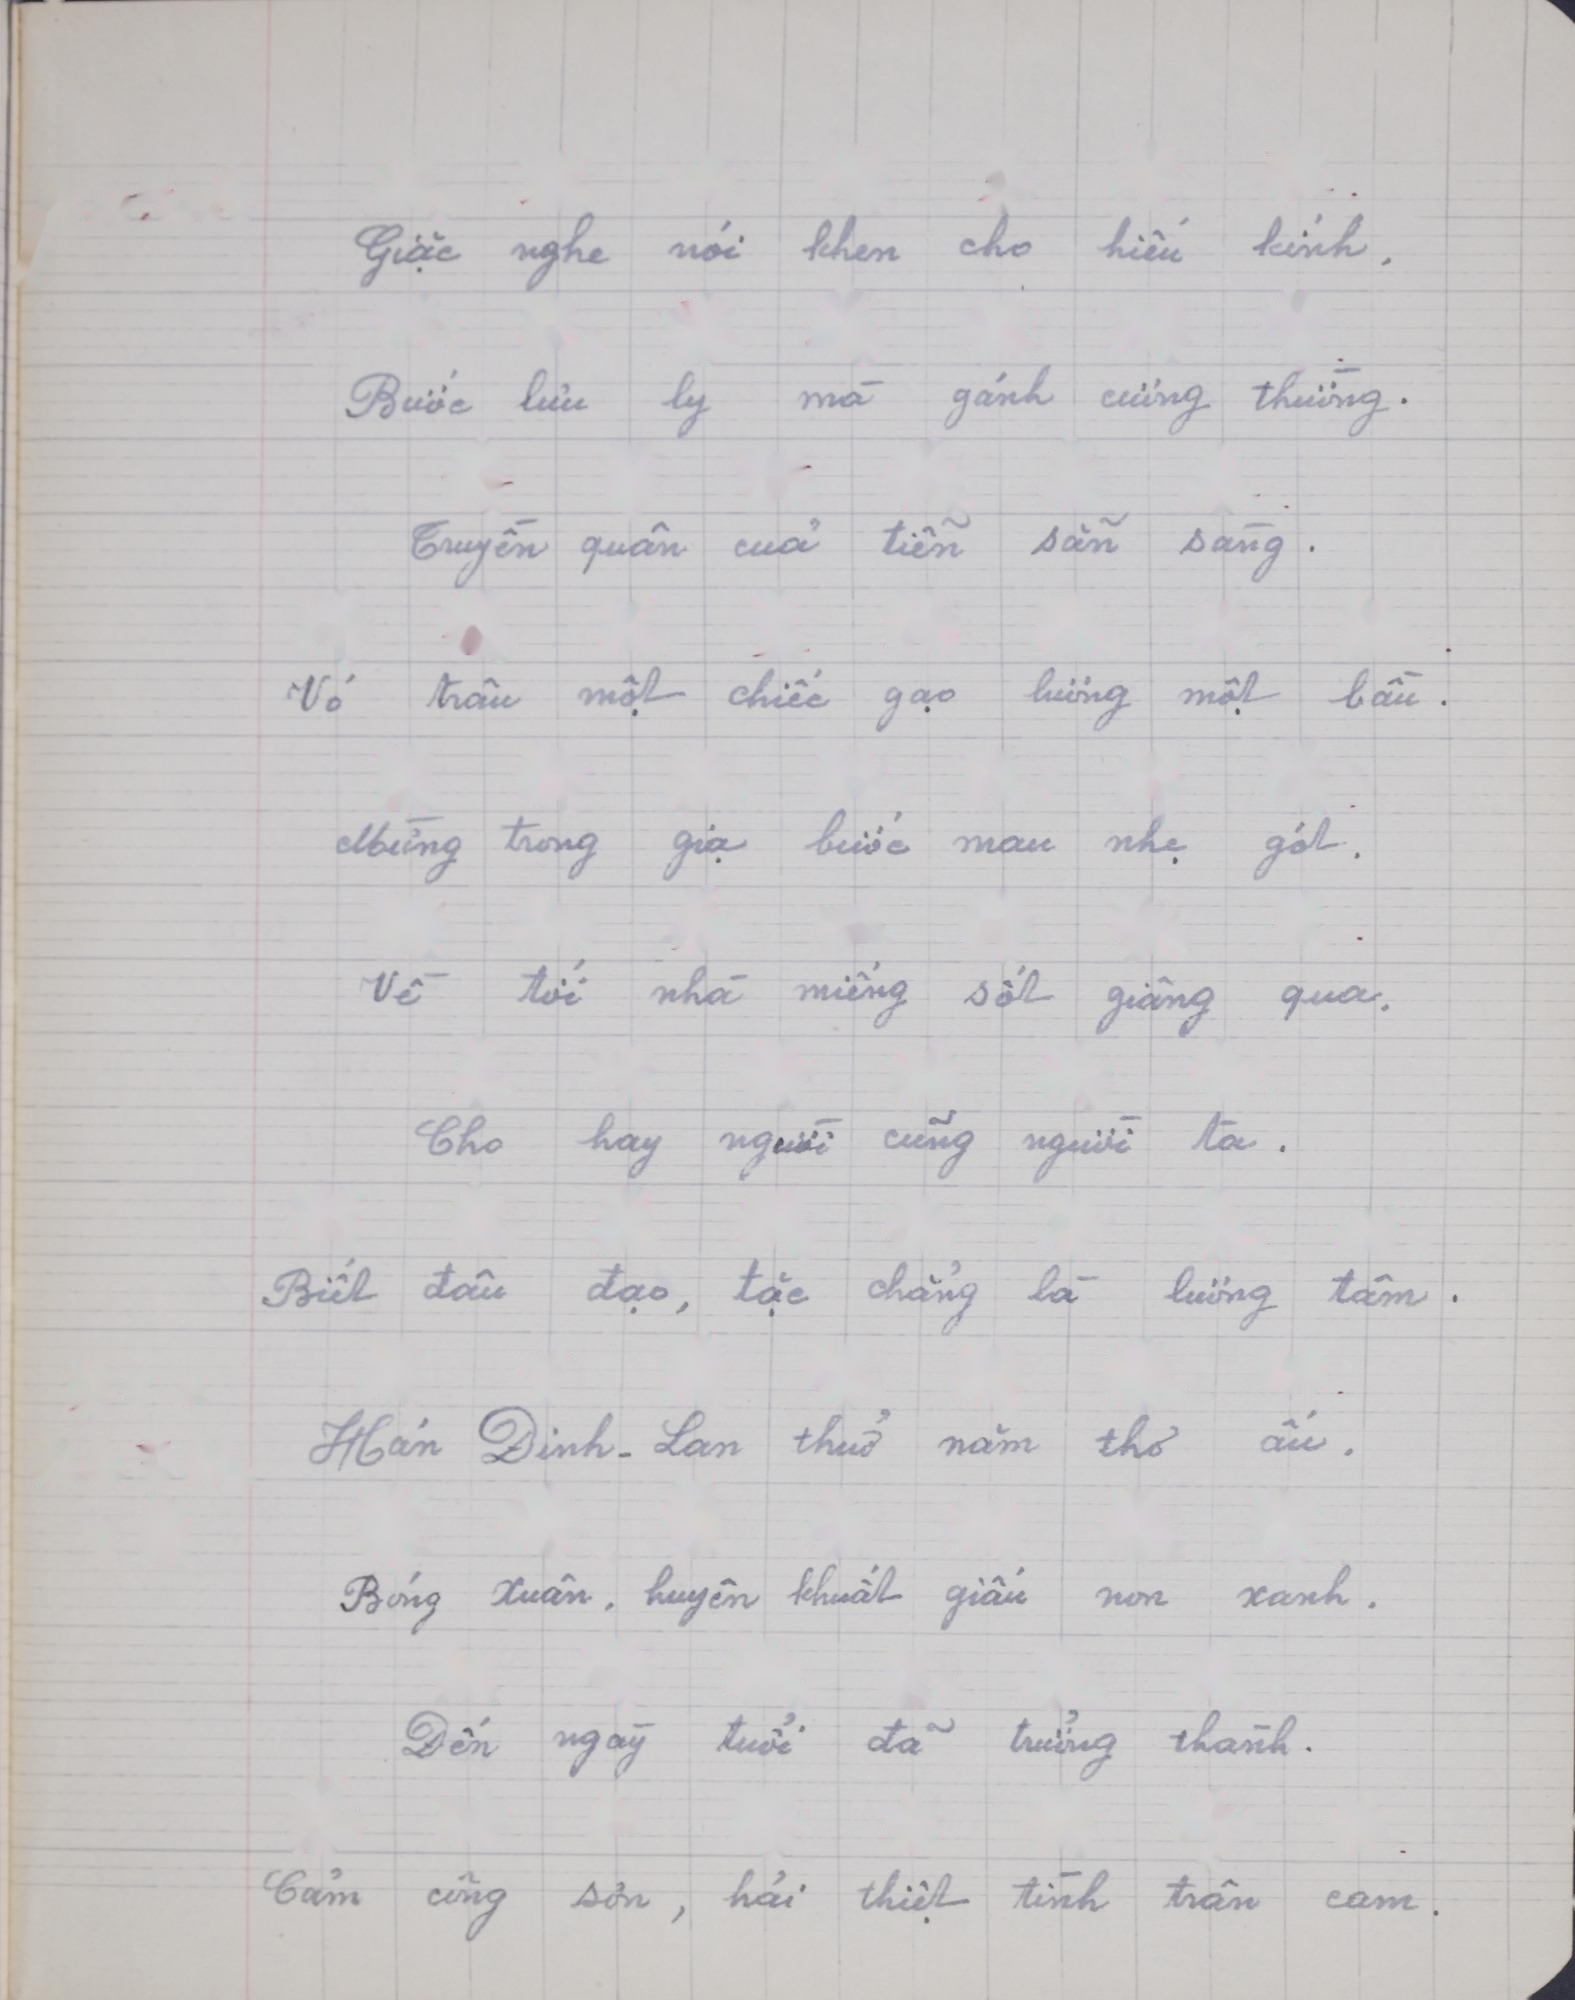 Giặc nghe nói khen cho hiếu kính.
Bước lưu ly mà gánh cương thường.
Truyền quân của tiễn sẵn sàng.
Vó trâu một chiếc gạo lương một bầu.
Mừng trong giạ bước mau nhẹ gót.
Về tới nhà miếng sốt giâng qua.
Cho hay người cũng người ta.
Biết đâu đạo, tặc chẳng là lương tâm.
Hán Đinh-Lan thuở năm thơ ấu.
Bóng xuân, huyên khuất giấu non xanh.
Đến ngày tuổi đã trưởng thành.
Cảm công sơn, hải thiệt tình trân cam.